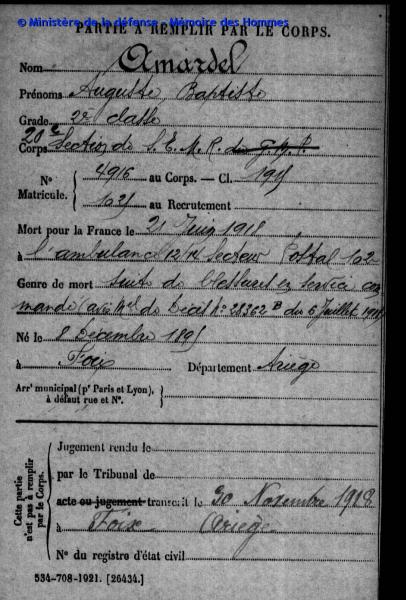 © Ministère de la défense - Mémoire des Hommes
PARTIE À REMPLIR PAR LE CORPS.
Nom Amardel
Prénoms Auguste Baptiste
Grade 2e classe
20e
Corps Section de S. E. M. R. du G. M. P.
No 4916 au Corps. — Cl. 1915
Matricule. 1025 au Recrutement
Mort pour la France le 21 Juin 1918
à l'ambulance 12/ Secteur Postal 102
Genre de mort suite de blessures en service com
mandé (avis de décès No 28362 B du 6 Juillet 1918
Né le 8 Décembre 1895
à Foix Département Ariège
Arrt municipal (pr Paris et Lyon),
à défaut rue et No.
Cette partie
n'est pas à remplir
par le Corps.
Jugement rendu le
par le Tribunal de
acte ou jugement transcrit le 30 Novembre 1918
à Foix Ariège
No du registre d'état civil
534-708-1921. [26434.]